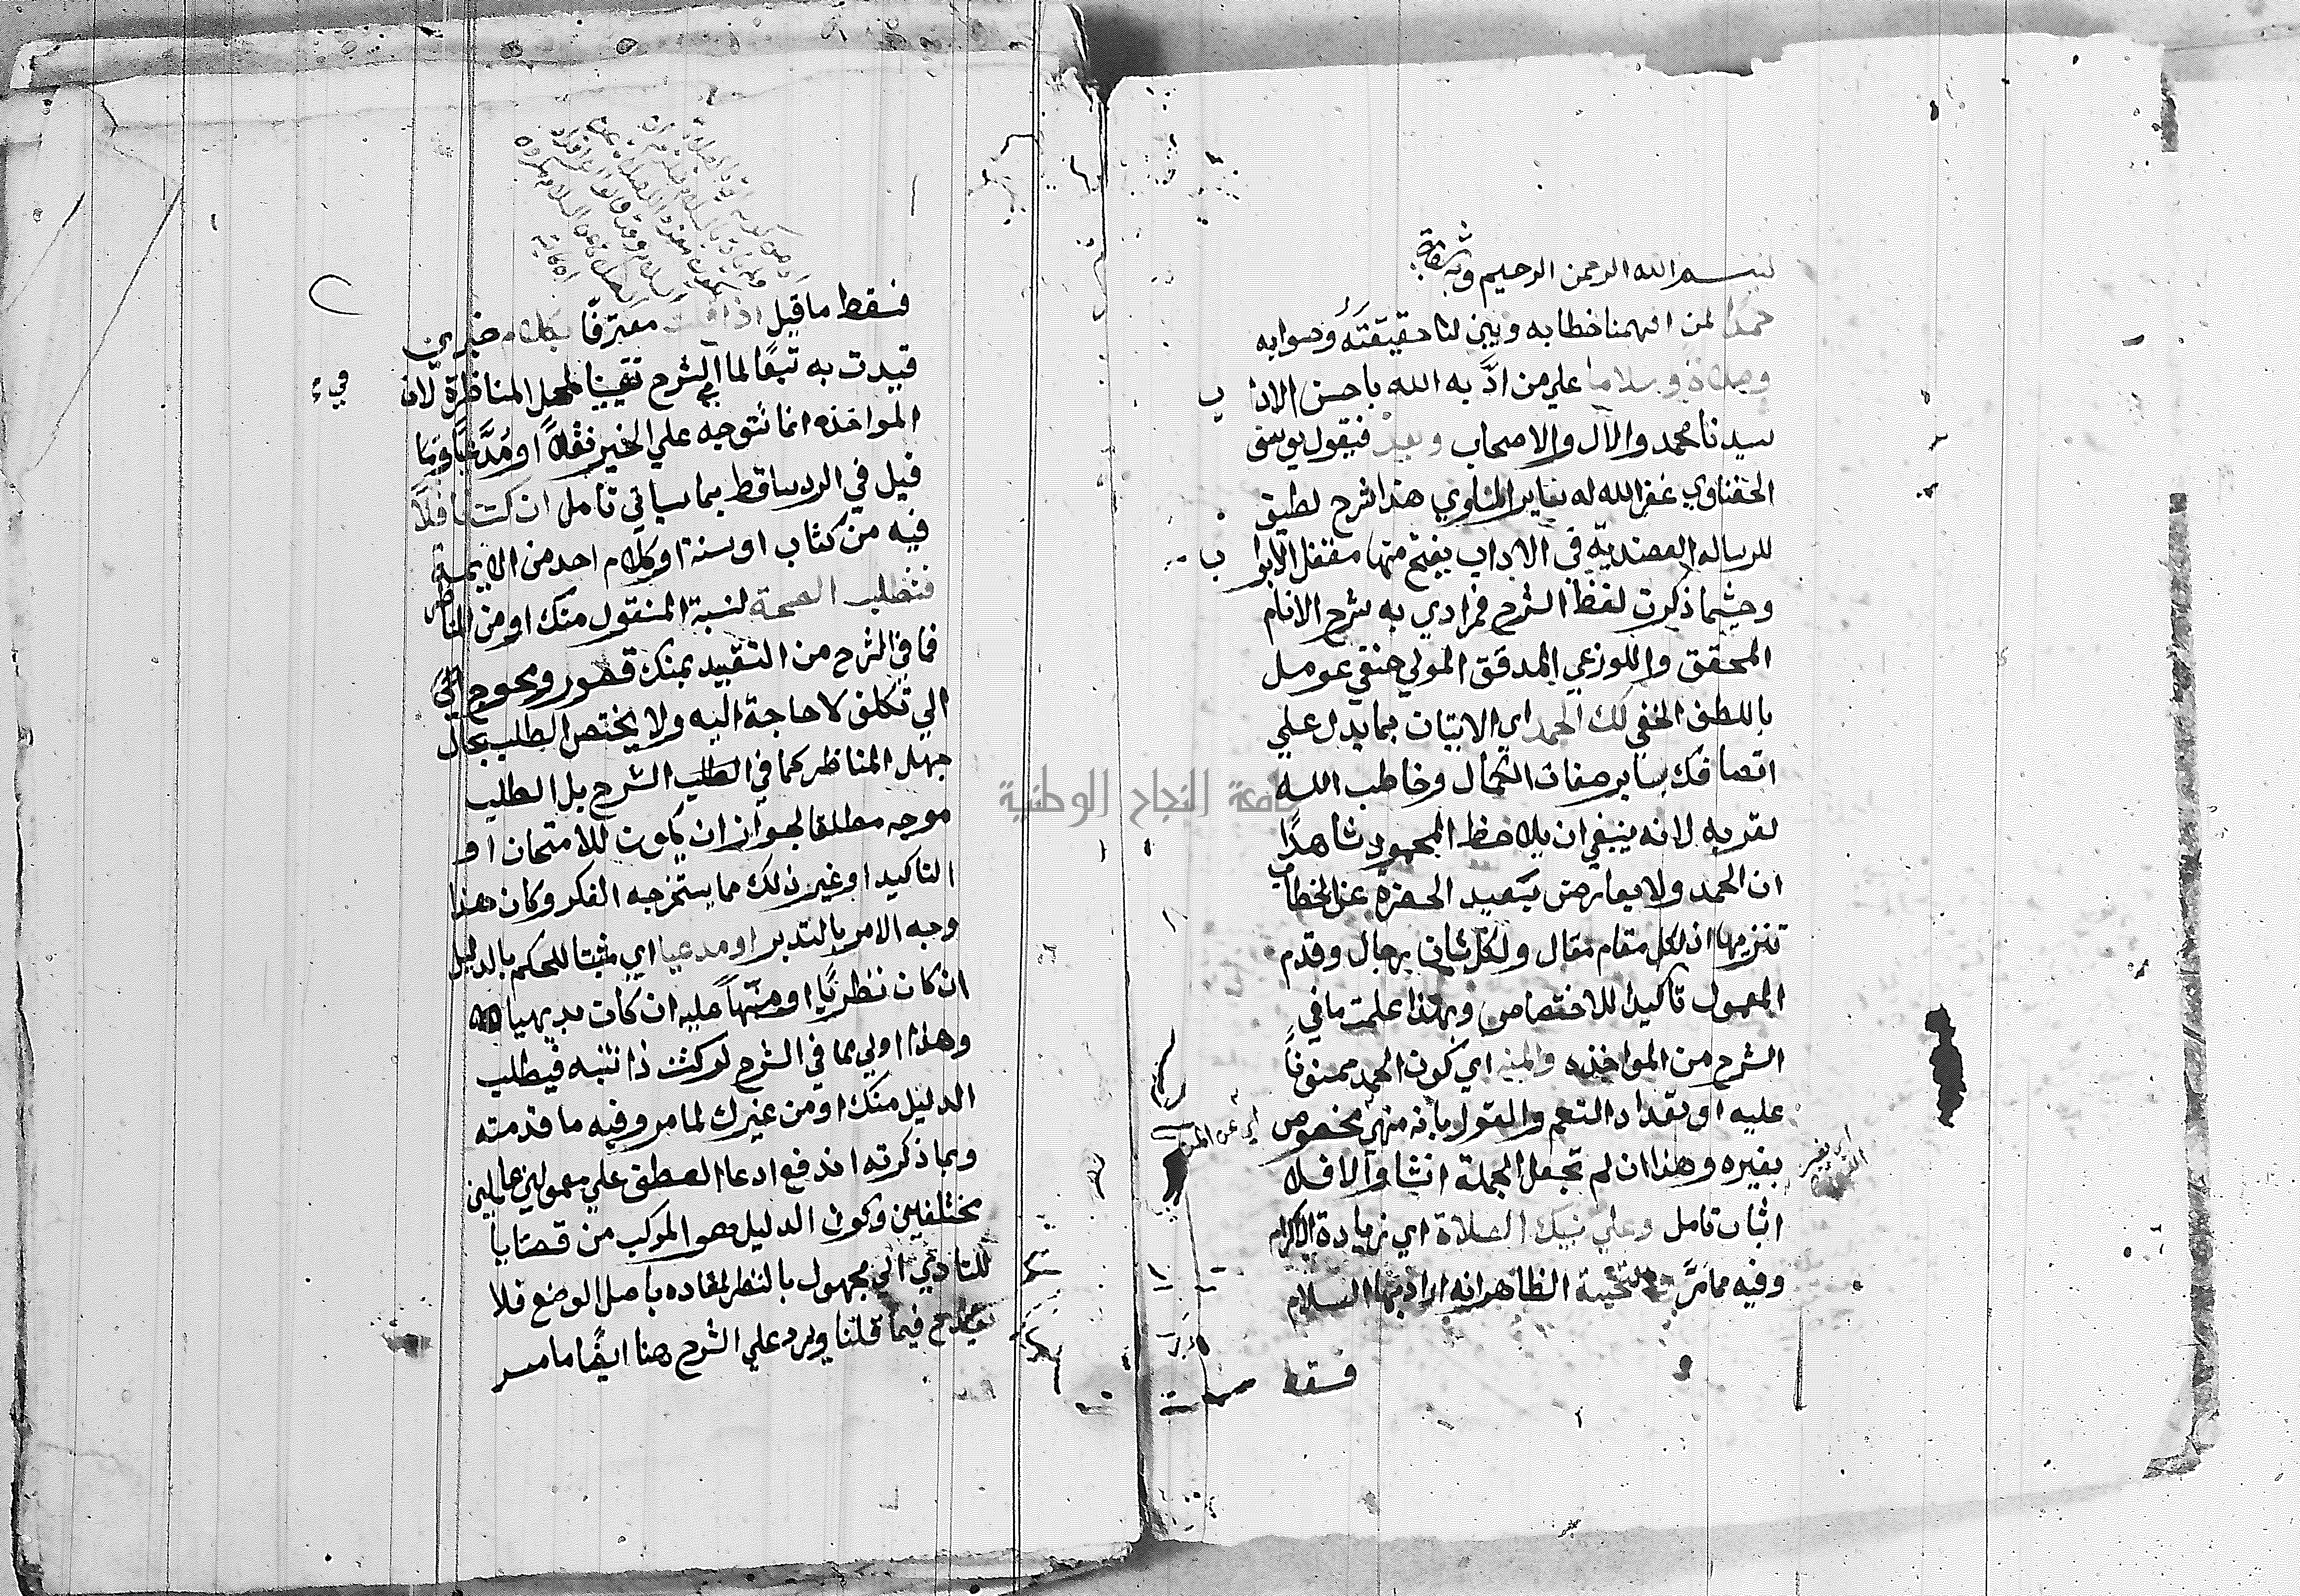 بسم الله الرحمن الرحيم وبه ثقتي
حمدا لمن الهمنا خطابه وبين لنا حقيقته وصوابه
وصلاة وسلاما علي من ادبه الله باحسن الاداب
سيدنا محمد والآل والاصحاب وبعد فيقول يوسف
الحفناوي غفر الله له هذا شرح لطيف
للرسالة العضدية في الاداب يفتح منها مقفل الابواب
وحيثما ذكرت لفظ الشرح فمرادي به شرح الامام
المحقق واللوزعي المدقق المولي حنفي عومل
باللطف الخفي لك الحمد اي الاتيان بما يدل علي
اتصافك بساير صفات الكمال وخاطب الله
لقربه لانه ينبغي ان يلاحظ المحمود شاهدا
ان الحمد ولا يعارض تبعيد الحضرة عن الخطاب
تنزيها اذ لكل مقام مقال ولكل شان رجال وقدم
المعمول تاكيدا للاختصاص وبهذا علمت ما في
الشرح من المواخذه والمنه اي كون الحمد ممنونا
عليه او تعداد النعم والقول بانه منهي مخصوص
بغيره وهذا ان لم تجعل الجملة انشا والا فلا
اثبات تامل وعلي نبيك الصلاة اي زيادة الاكرام
وفيه ما مر والتحية الظاهر انه اراد بها السلام
فسقط
فسقط ما قيل اذا قلت معترفا بكلام خبري
قيدت به تبعا لما في الشرح تعيينا لمحل المناظرة لان
المواخذه انما تتوجه علي الخبر نقلا او مدعيا وما
قيل في الرد ساقط بما سياتي تامل ان كنت ناقلا
فيه من كتاب او سنة او كلام احد من الايمة
فتطلب الصحة لنسبة المنقول منك او من المناظر
فما في الشرح من التقييد بمنك قصور ومحوج
الي تكلف لا حاجة اليه ولا يختص الطلب بحال
جهل المناظر كما في الشرح بل الطلب
موجه مطلقا لجواز ان يكون للامتحان او
التاكيد او غير ذلك مما يستخرجه الفكر وكان هذا
وجه الامر بالتدبر او مدعيا اي مثبتا للحكم بالدليل
ان كان نظريا او منبها عليه ان كان بديهيا
وهذا اولي مما في الشرح لو كنت ذا تنبه فيطلب
الدليل منك او من غيرك لما مر وفيه ما قدمته
وبما ذكرته اندفع ادعا العطف علي معمولي عاملين
مختلفين وكون الدليل هو المركب من قضايا
للتادي الي مجهول بالنظر لمفاده باصل الوضع فلا
يقدح فيما قلنا ويرد علي الشرح هنا ايضا ما مر
جامعة النجاح الوطنية